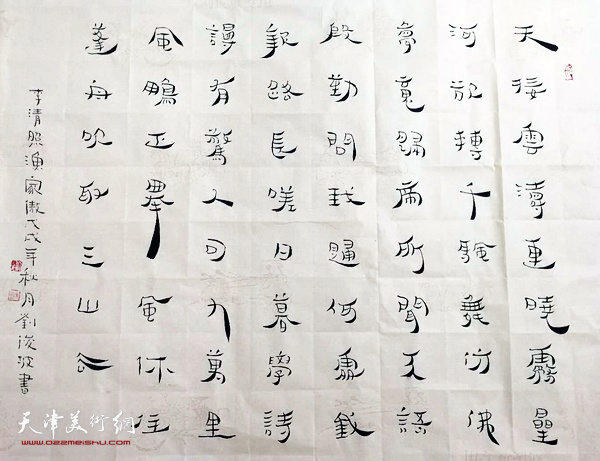 天接雲濤連曉霧星
河欲轉千帆舞仿佛
夢魂歸帝所聞天語
殷勤問我歸何處我
報路長嗟日暮學詩
謾有驚人句九萬里
風鵬正舉風休住
蓬舟吹取三山去
李清照漁家傲戊戌年秋月劉俊波書
天津美術網
www.022meishu.com